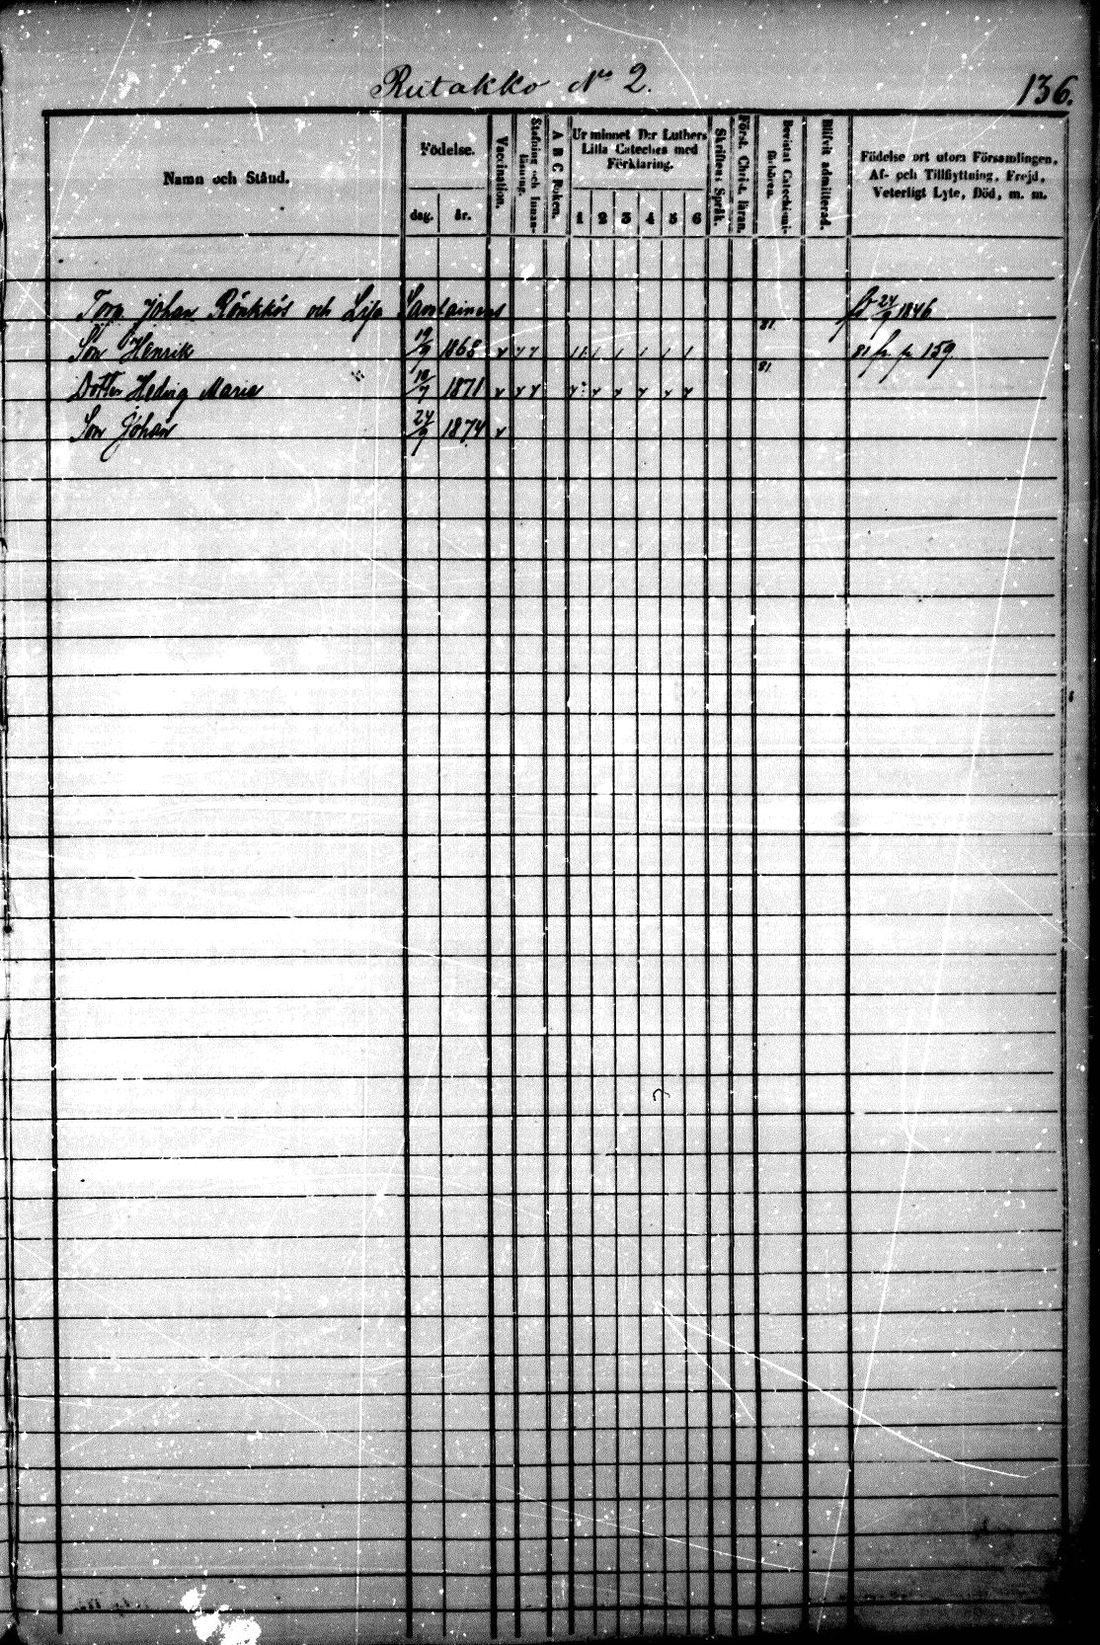 Rutakko No 2.
136.
Namn och Stånd.
Födelse.
dag. år.
Vaccination.
Stafning och Innanläsning.
A B C Boken.
Ur minnet D:r Luthers Lilla Cateches med Förklaring.
1 2 3 4 5 6
Skriftens Språk.
Först. Christ. läran.
Bevistat Catechismi-förhören.
Blifvit admitterad.
Födelse ort utom Församlingen, Af- och Tillflyttning, Frejd, Veterligt Lyte, Död, m. m.
Torp Johan Rönkkös och Lisa Savolainens 24/9 1846
Son Henrik 19/9 1868 v v v / / / / / / / 81 81 fr. p. 159
Dotter Hedvig Maria 19/7 1871 v v v v v v v v v 81
Son Johan 24/9 1874 v